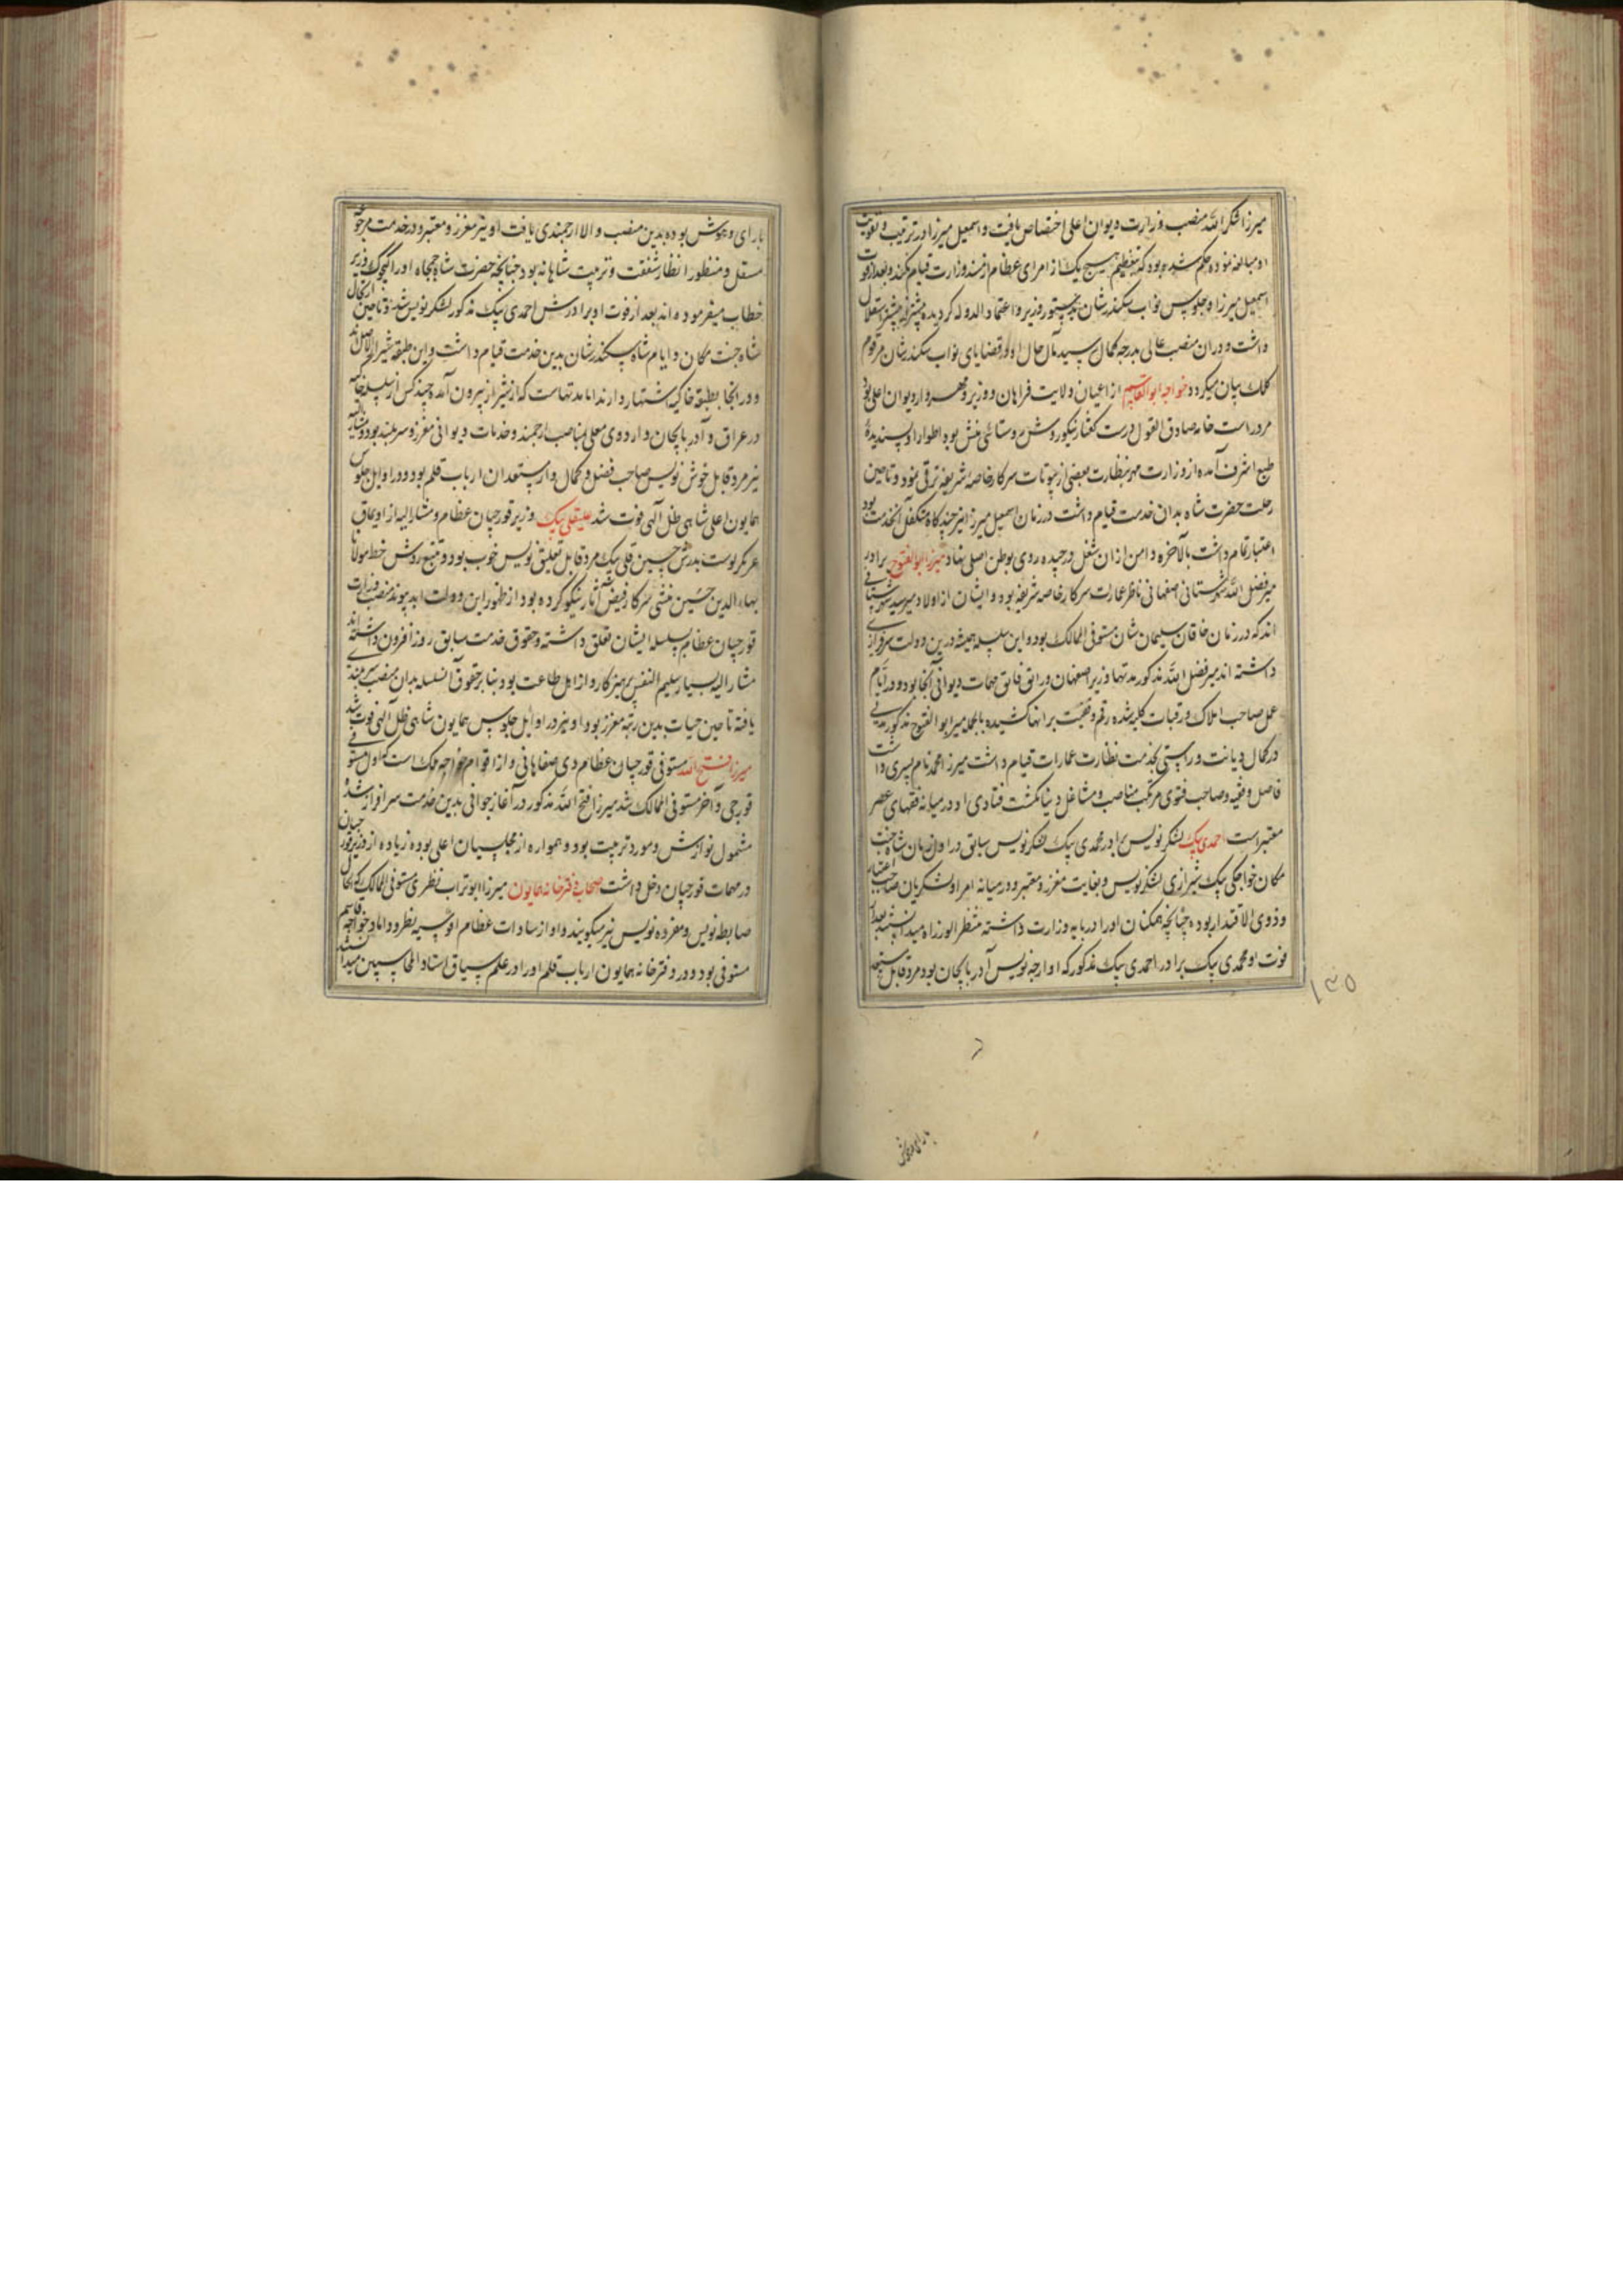 میرزا شکرالله منصب وزارت دیوان اعلی اختصاص یافت و اسمعیل میرزا در ترتیب و تقویت
او مبالغه نموده حکم شده بود که بتعظیم هیچ یک از امرای عظام از مسند وزارت قیام نکند و بعد از فوت
اسمعیل میرزا و جلوس نواب سکندرشان بدستور وزیر و اعتماد الدوله گردیده بیشتر از پیشتر استقلال
داشت و در ان منصب عالی بدرجه کمال رسید مآل حال او در قضایای نواب سکندرشان مرقوم
کلک بیان میکردد خواجه ابوالقاسم از اعیان ولایت فراهان و وزیر و مهردار دیوان اعلی بود
مرد راست خانه صادق القول درست گفتار نیکو روش روستائی منش بود اطوار او پسندیدهٔ
طبع اشرف آمده از وزارت مهر بنظارت بعضی از بیوتات سرکار خاصه شریفه ترقی نمود و تا حین
رحلت حضرت شاه بدان خدمت قیام داشت در زمان اسمعیل میرزا نیز چندگاه متکفل آنخدمت بود
اعتبار تمام داشت بالآخره دامن از ان شغل درچیده روی بوطن اصلی نهاد میرزا ابوالفتوح برادر
میر فضل الله شهرستانی اصفهانی ناظر عمارت سرکار خاصه شریفه بود و ایشان از اولاد میر سید شهرستانی
اند که در زمان خاقان سلیمان شان مستوفی الممالک بود و این سلسله همیشه درین دولت سرفرازی
داشته اند میر فضل الله مذکور مدتها وزیر اصفهان و راتق فاتق مهمات دیوانی آنجا بود و در ایام
عمل صاحب املاک و رقبات کلیه شده رقم وقفیت بر انها کشیده بالجمله میر ابوالفتوح مذکور مدتی
در کمال دیانت و راستی بخدمت نظارت عمارات قیام داشت میرزا محمد نام پسری داشت
فاضل و فقیه و صاحب فتوی مرتکب مناصب و مشاغل دنیا نگشت فتاوی او در میانه فقهای عصر
معتبر است احمدی بیک لشکر نویس برادر محمدی بیک لشکر نویس سابق در اول زمان شاه جنت
مکان خواجکی بیک شیرازی لشکر نویس و بغایت معزز و معتبر و در میانه امرا و لشکریان صاحب اعتبار
و ذوی الاقتدار بوده چنانچه همکنان او را در پایه وزارت داشته منتظر الوزراه میدانستند بعد از
فوت او محمدی بیک برادر احمدی بیک مذکور که اوارجه نویس آذربایجان بود مرد قابل مستعد
۱۳۵
با رای و هوش
با رای و هوش بوده بدین منصب والا ارجمندی یافت او نیز معزز و معتبر و در خدمت مرجوعه
مستقل و منظور انظار شفقت و تربیت شاهانه بود چنانچه حضرت شاه جمجاه او را کوچک وزیر
خطاب میفرموده اند بعد از فوت او برادرش احمدی بیک مذکور لشکر نویس شد و تا حین ارتحال
شاه جنت مکان و ایام شاه سکندرشان بدین خدمت قیام داشت و این طبقه شیرازی الاصل اند
و در انجا بطبقه خاکیه اشتهار دارند اما مدتهاست که از شیراز بیرون آمده چند کس از سلسله خاکیه
در عراق و آذربایجان و اردوی معلی بمناصب ارجمند و خدمات دیوانی معزز و سربلند بودند و مشارالیه
نیز مرد قابل خوش نویس صاحب فضل و کمال و از مستعدان ارباب قلم بود و در اوایل جلوس
همایون اعلی شاهی ظل الهی فوت شد علیقلی بیک وزیر قورچیان عظام و مشارالیه از اویماق
عربکرلوست پدرش حسین قلی بیک مرد قابل تعلیق نویس خوب بود و تتبع روش خط مولانا
بهاء الدین حسین منشی سرکار فیض آثار نیکو کرده بود از ظهور این دولت ابد پیوند منصب وزارت
قورچیان عظام بسلسله ایشان تعلق داشته و حقوق خدمت سابق روز افزون داشته اند
مشارالیه بسیار سلیم النفس پرهیزکار و از اهل طاعت بود و بنابر حقوق آنسلسله بدان منصب سربلندی
یافته تا حین حیات بدین رتبه معزز بود و او نیز در اوایل جلوس همایون شاهی ظل الهی فوت شد
میرزا فتح الله مستوفی قورچیان عظام وی صفاهانی و از اقوام خواجه ملک است که اول مستوفی
قورچی و آخر مستوفی الممالک شد میرزا فتح الله مذکور در آغاز جوانی بدین خدمت سرافراز شده
مشمول نوازش و مورد تربیت بود و همواره از مجلسیان اعلی بوده زیاده از وزیر قورچیان
در مهمات قورچیان دخل داشت صحاب دفترخانه همایون میرزا ابوتراب نطنزی مستوفی الممالک که الحال
ضابطه نویس و مفرده نویس نیز میگویند و او از سادات عظام اوسیه نطنز و داماد خواجه قاسم
مستوفی بود و در دفترخانه همایون ارباب قلم او را در علم سیاق استاد المحاسبین میدانستند